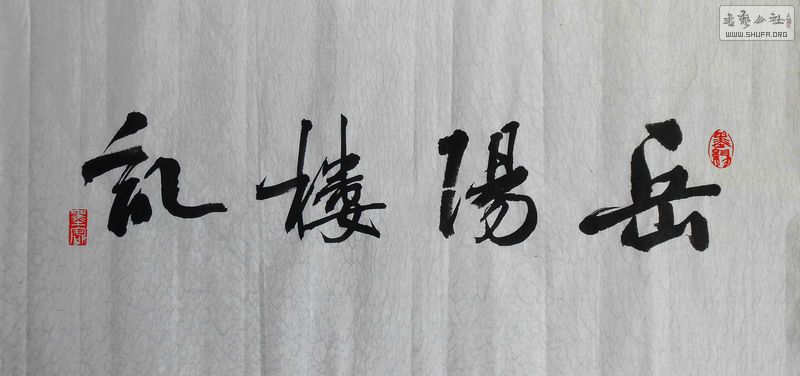 岳陽樓記
书艺公社
WWW.SHUFA.ORG